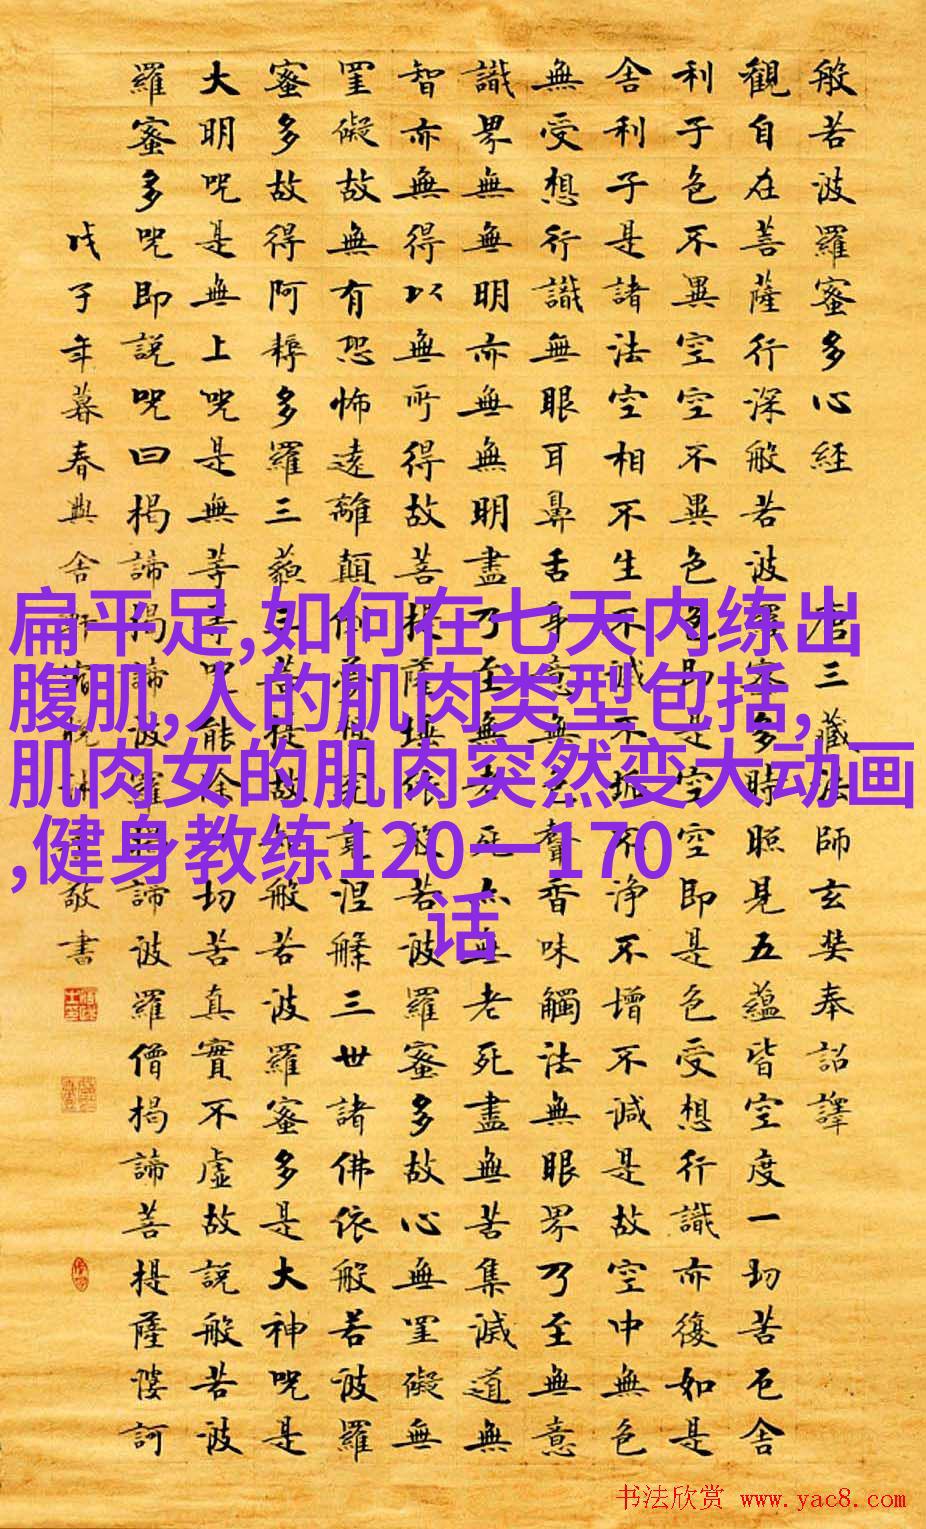 般若波羅蜜多心經 唐三藏法師玄奘奉詔譯
觀自在菩薩行深般若波羅蜜多時照見五蘊皆空度一切苦厄舍
利子色不異空空不異色色即是空空即是色受想行識亦復如是
舍利子是諸法空相不生不滅不垢不淨不增不減是故空中無色
無受想行識無眼耳鼻舌身意無色聲香味觸法無眼界乃至無意
識界無無明亦無無明盡乃至無老死亦無老死盡無苦集滅道無
智亦無得以無所得故菩提薩埵依般若波羅蜜多故心無罣礙無
罣礙故無有恐怖遠離顛倒夢想究竟涅槃三世諸佛依般若波羅
蜜多故得阿耨多羅三藐三菩提故知般若波羅蜜多是大神咒是
大明咒是無上咒是無等等咒能除一切苦真實不虛故說般若波
羅蜜多咒即說咒曰揭諦揭諦波羅揭諦波羅僧揭諦菩提薩婆訶
戊子年暮春與舍 敬書
扁平足,如何在七天内练出
腹肌,人的肌肉类型包括,
肌肉女的肌肉突然变大动画
,健身教练120一170
话
书法欣赏 www.yac8.com